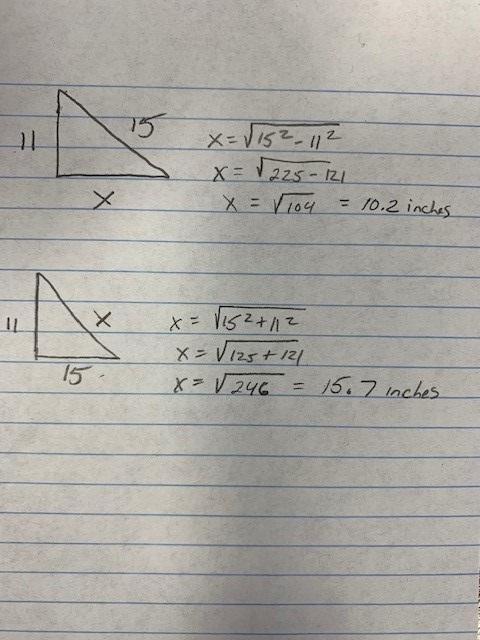 15
11
x = √15² - 11²
x = √225 - 121
x
x = √104 = 10.2 inches
11
x
x = √15² + 11²
x = √125 + 121
15
x = √246 = 15.7 inches